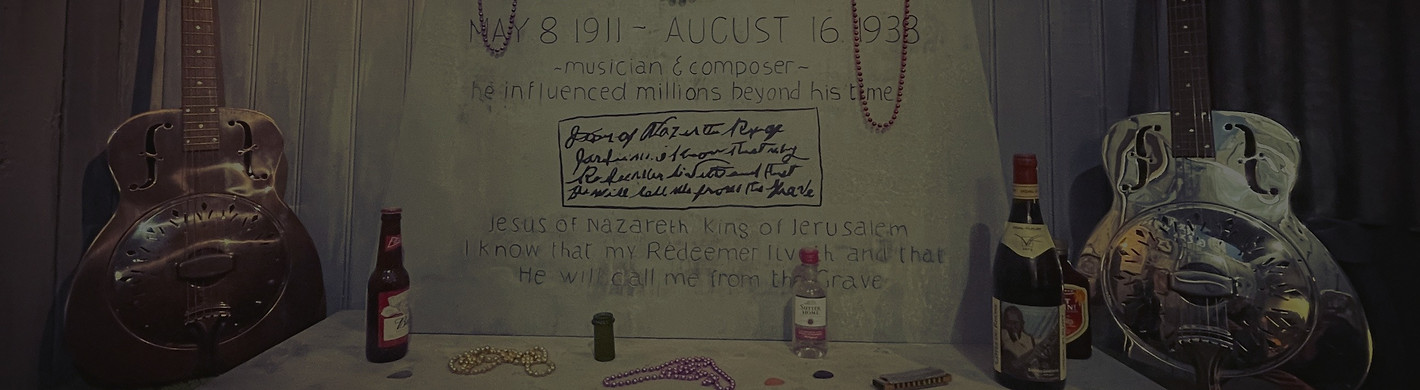 MAY 8 1911 ~ AUGUST 16 1938
~musician & composer~
he influenced millions beyond his time
Jesus of Nazareth King of
Jerusalem. I know that my
Redeemer liveth and that
He will call me from the Grave
Jesus of Nazareth King of Jerusalem
I know that my Redeemer liveth and that
He will call me from the Grave
SUTTER
HOME